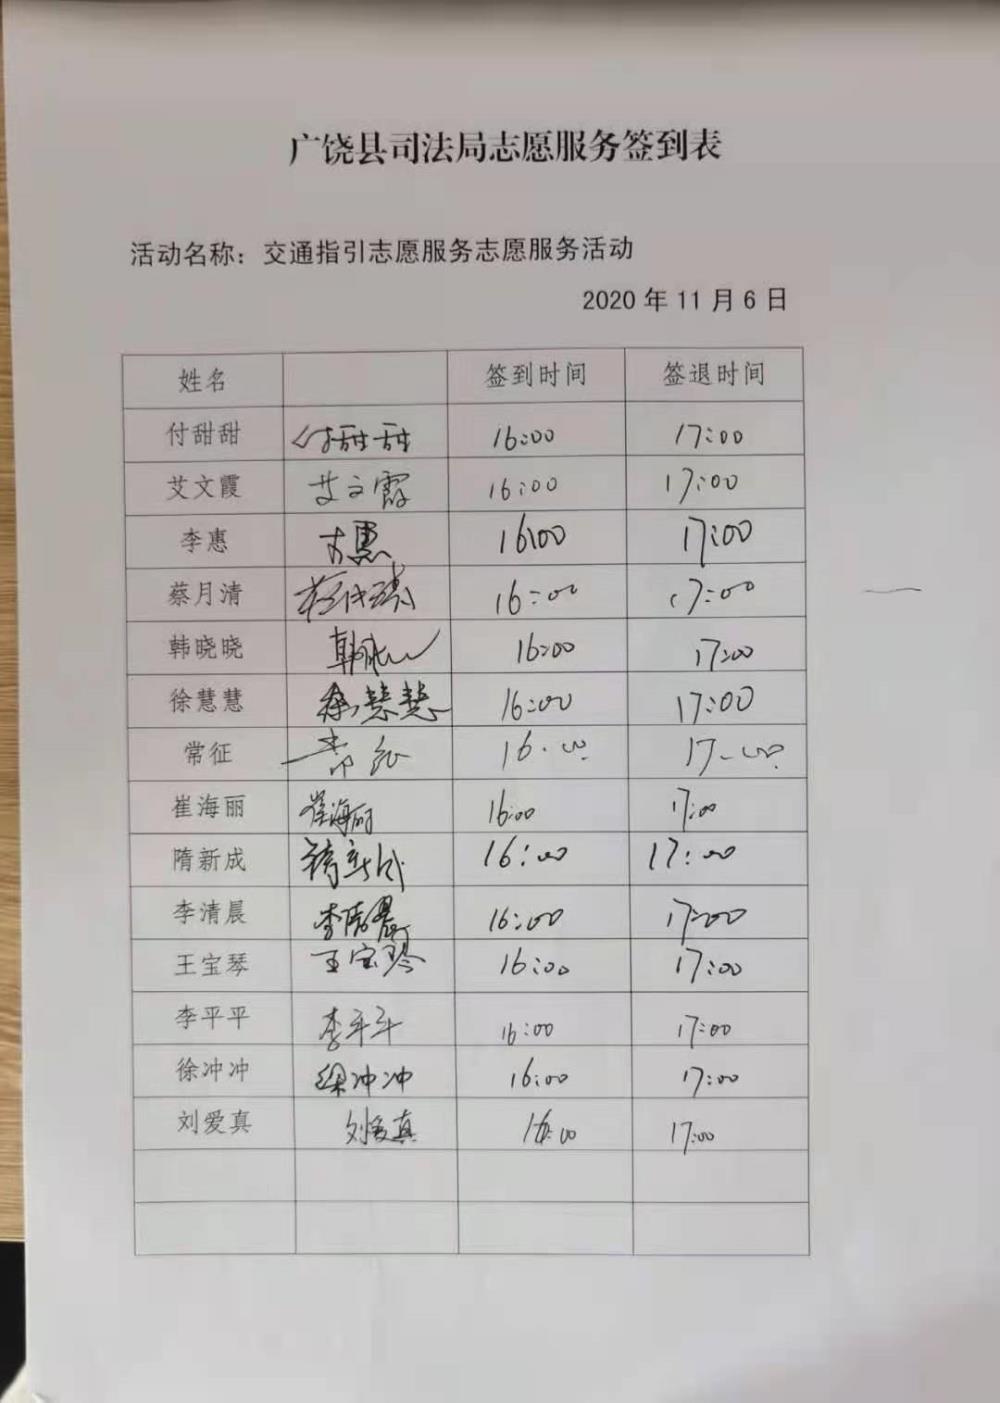 广饶县司法局志愿服务签到表
活动名称：交通指引志愿服务志愿服务活动
2020 年 11 月 6 日
姓名 签到时间 签退时间
付甜甜 付甜甜 16:00 17:00
艾文霞 艾文霞 16:00 17:00
李惠 李惠 16:00 17:00
蔡月清 16:00 17:00
韩晓晓 韩晓晓 16:00 17:00
徐慧慧 徐慧慧 16:00 17:00
常征 常征 16:00 17:00
崔海丽 崔海丽 16:00 17:00
隋新成 隋新成 16:00 17:00
李清晨 李清晨 16:00 17:00
王宝琴 王宝琴 16:00 17:00
李平平 李平平 16:00 17:00
徐冲冲 徐冲冲 16:00 17:00
刘爱真 刘爱真 16:00 17:00